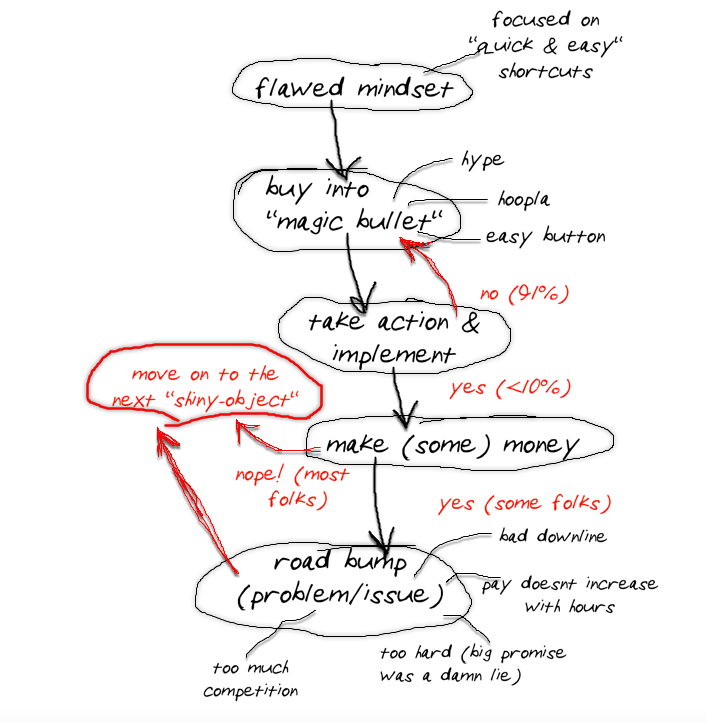 focused on
"quick & easy"
shortcuts
flawed mindset
buy into
"magic bullet"
hype
hoopla
easy button
no (91%)
take action &
implement
yes (<10%)
move on to the
next "shiny-object"
make (some) money
nope! (most
folks)
yes (some folks)
road bump
(problem/issue)
bad downline
pay doesnt increase
with hours
too hard (big promise
was a damn lie)
too much
competition